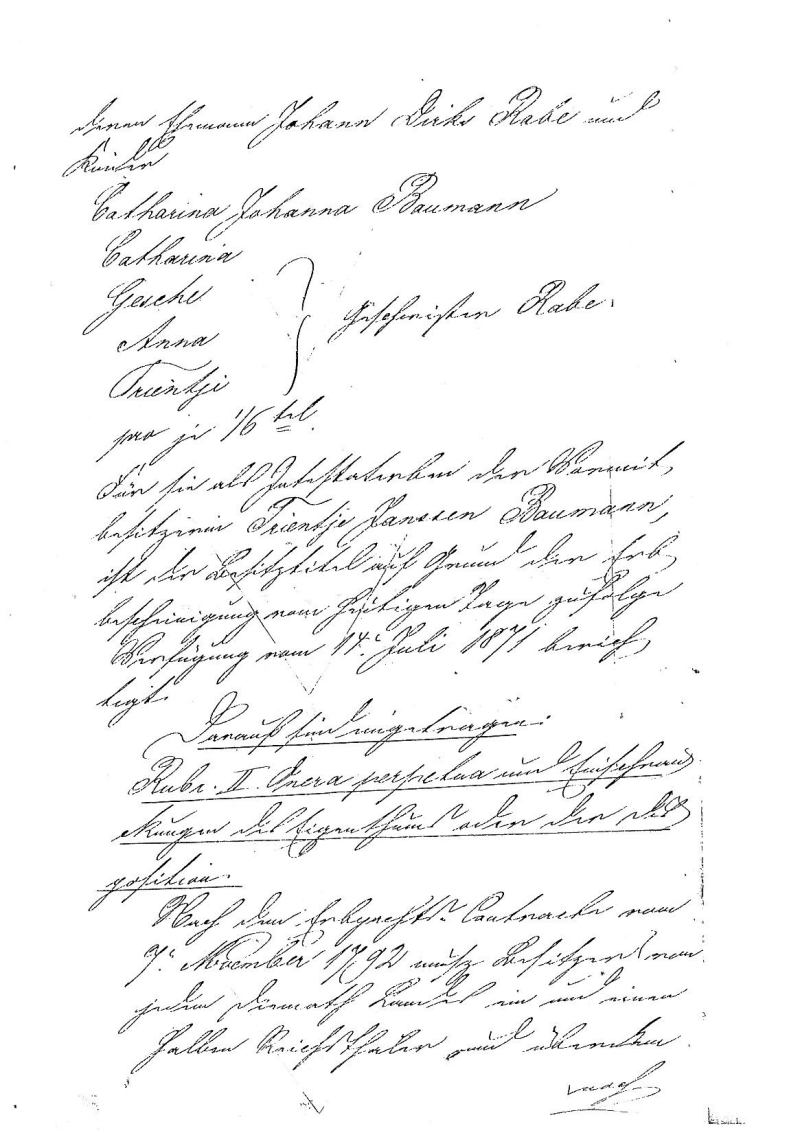 deren Ehemann Johann Dirks Rabe und
Kinder
Catharina Johanna Baumann
Catharina
Gesche
Anna
Trientje
Geschwister Rabe.
pro je 1/6 tel.
Für sie als Intestaterben der Vormit
besitzerin Trientje Janssen Baumann,
ist der Besitztitel auf Grund der Erb
bescheinigung vom heutigen Tage zufolge
Verfügung vom 14. Juli 1871 berich
tigt.
Darauf sind eingetragen:
Rubr. II. Onera perpetua und Einschrän
ckungen des Eigenthums oder der Dis
position.
Nach dem Erbpachts-Contracte vom
7. November 1792 muß Besitzer von
jedem Diemath Landes ein und einen
halben Reichsthaler und überdem